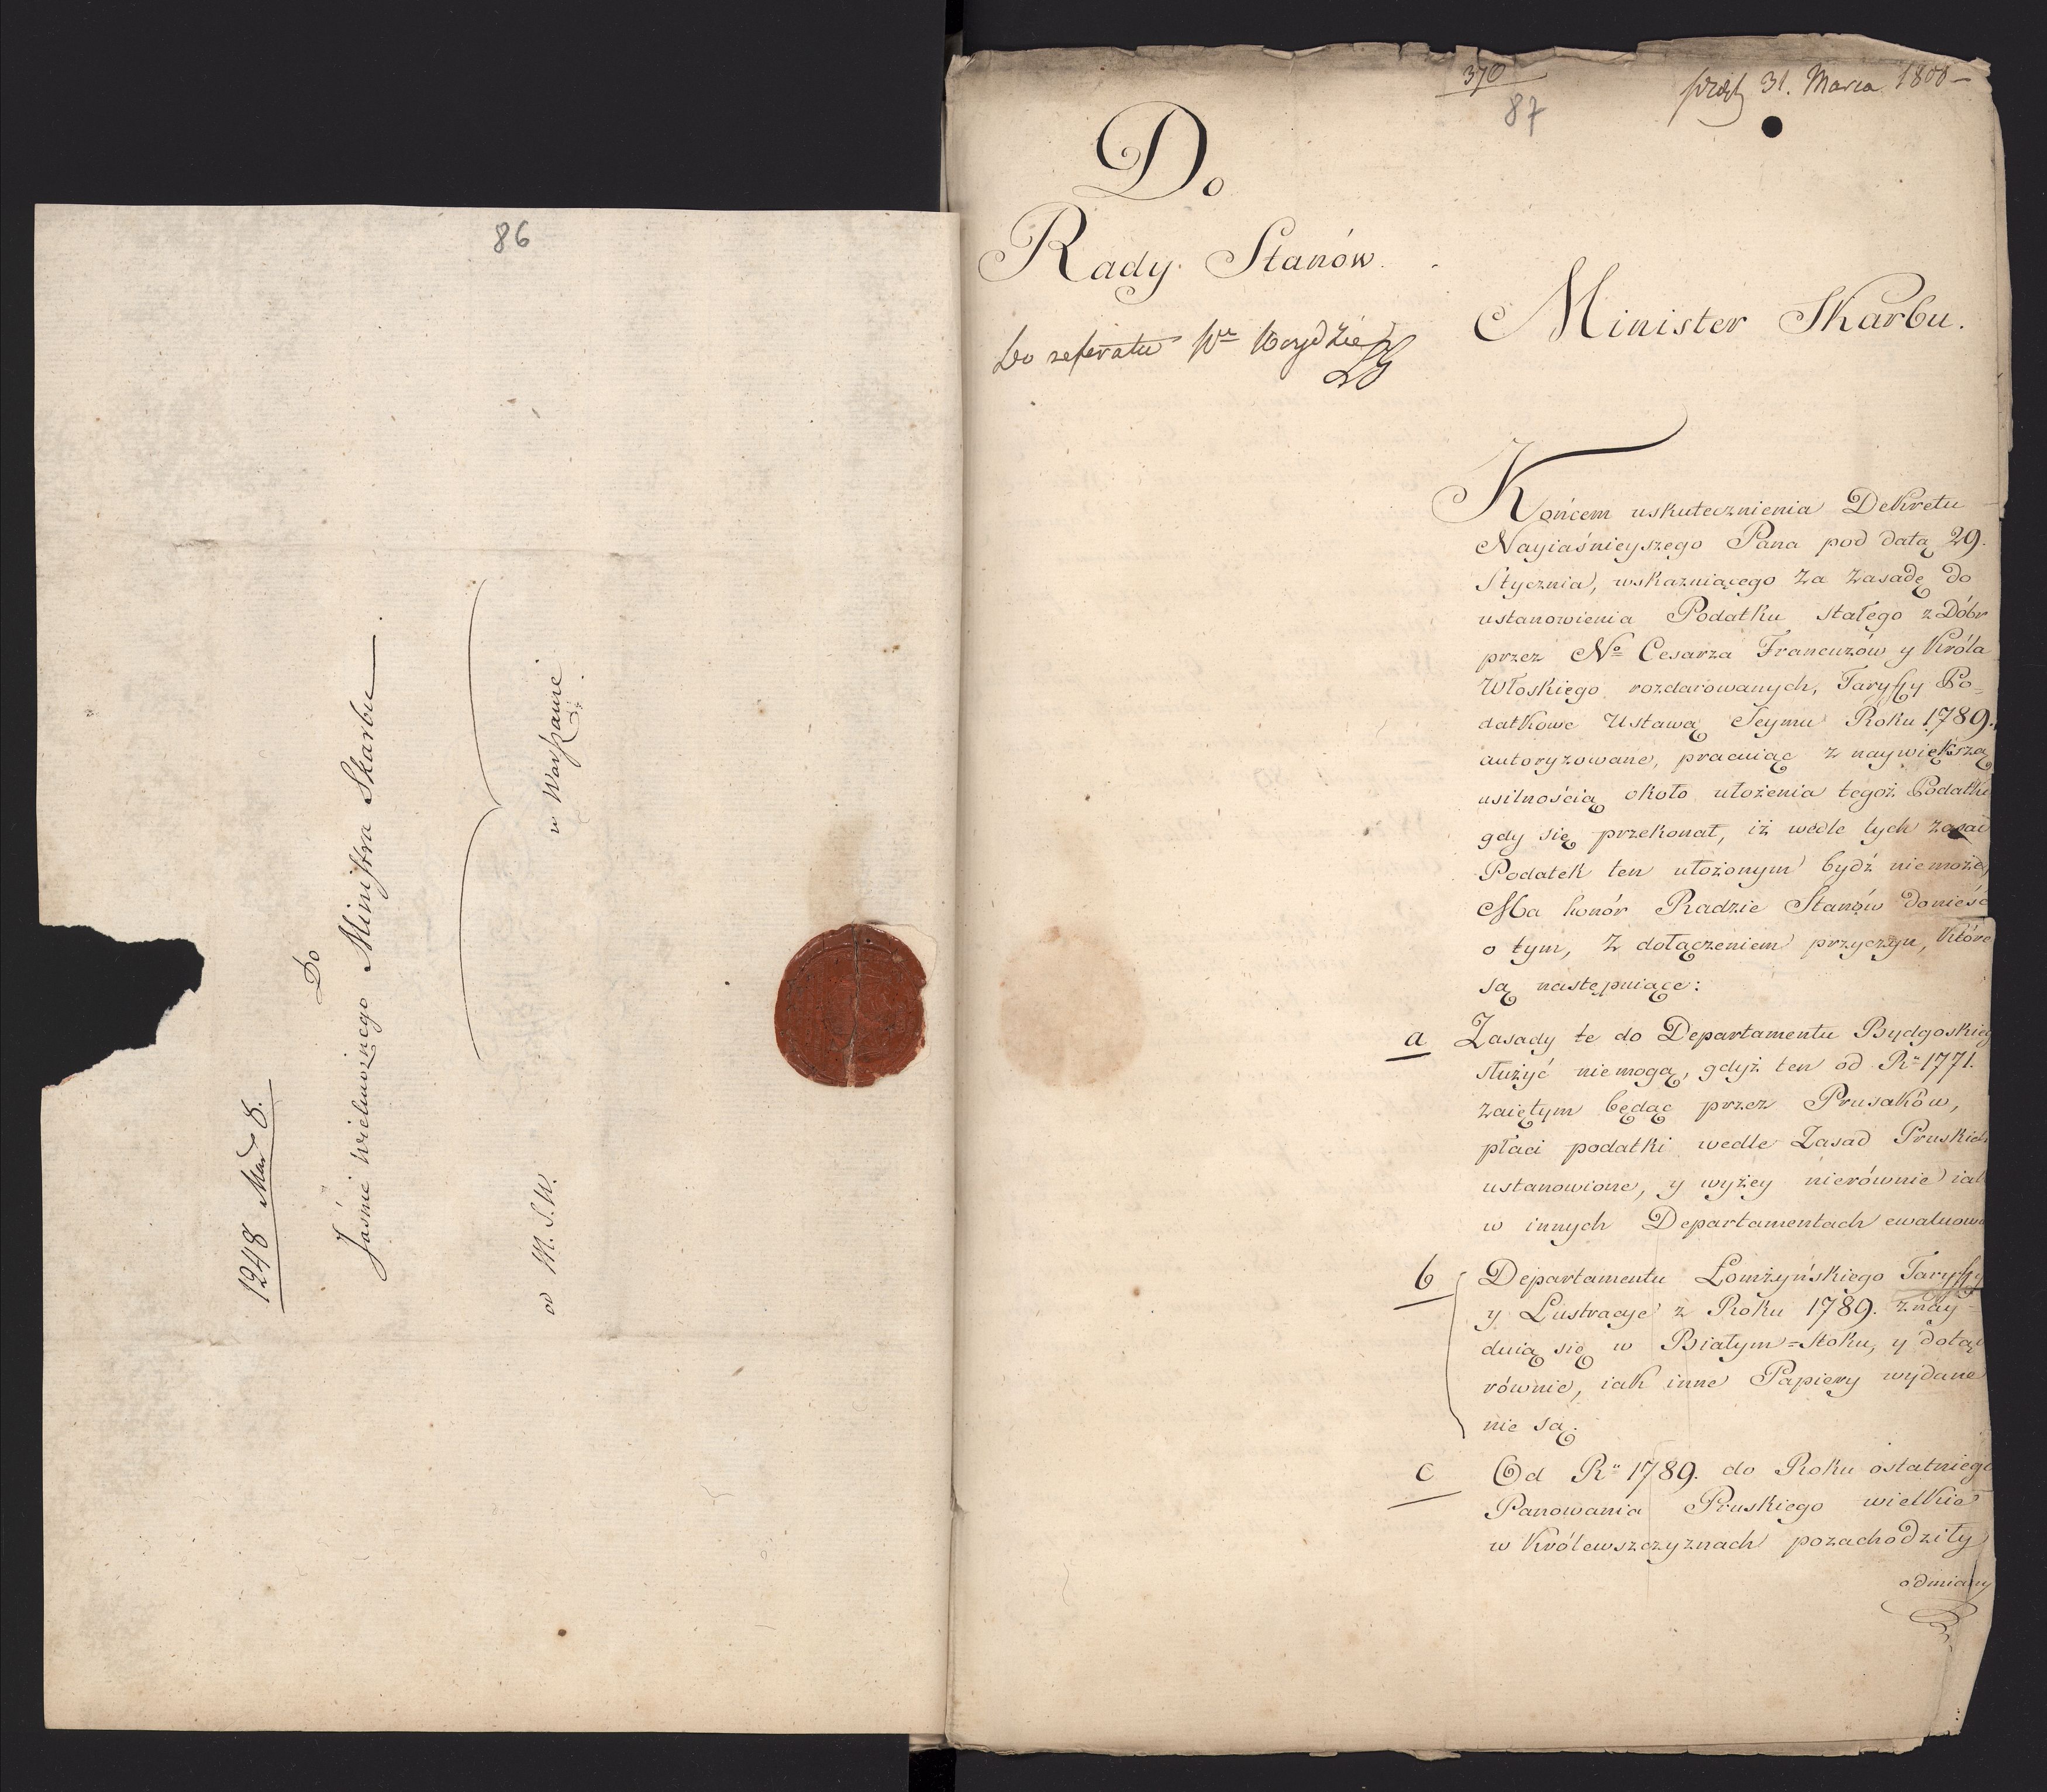 86
1248 Mar 8.
Do
Jaśnie wielmożnego Ministra Skarbu
w Warszawie.
od M. S. W.
370
87
31. Marca 1808
Do
Rady Stanów.
Do referatu
Minister Skarbu.
Końcem uskutecznienia Dekretu
Nayiaśnieyszego Pana pod datą 29.
Stycznia, wskazuiącego za zasadę do
ustanowienia Podatku stałego z Dóbr
przez Nº Cesarza Francuzów y Króla
Włoskiego rozdarowanych, Taryffy Po=
datkowe Ustawą Seymu Roku 1789.
autoryzowane, pracuiąc z naywiększą
usilnością około ułożenia tegoż Podatku
gdy się przekonał, iż wedle tych zasad
Podatek ten ułożonym bydź niemoże,
Ma honór Radzie Stanów donieść
o tym, z dołączeniem przyczyn, które
są następuiące:
a Zasady te do Departamentu Bydgoskieg
służyć niemogą, gdyż ten od Rº 1771.
zaiętym będąc przez Prusaków,
płaci podatki wedle Zasad Pruskich
ustanowione, y wyżey nierównie iak
w innych Departamentach ewaluowa
b Departamentu Łomżyńskiego Taryffy
y Lustracye z Roku 1789. znay=
duią się w Białym=Stoku, y dotąd
równie, iak inne Papiery wydane
nie są.
c Od Rº 1789. do Roku ostatniego
Panowania Pruskiego wielkie
w Królewszczyznach pozachodziły
odmiany